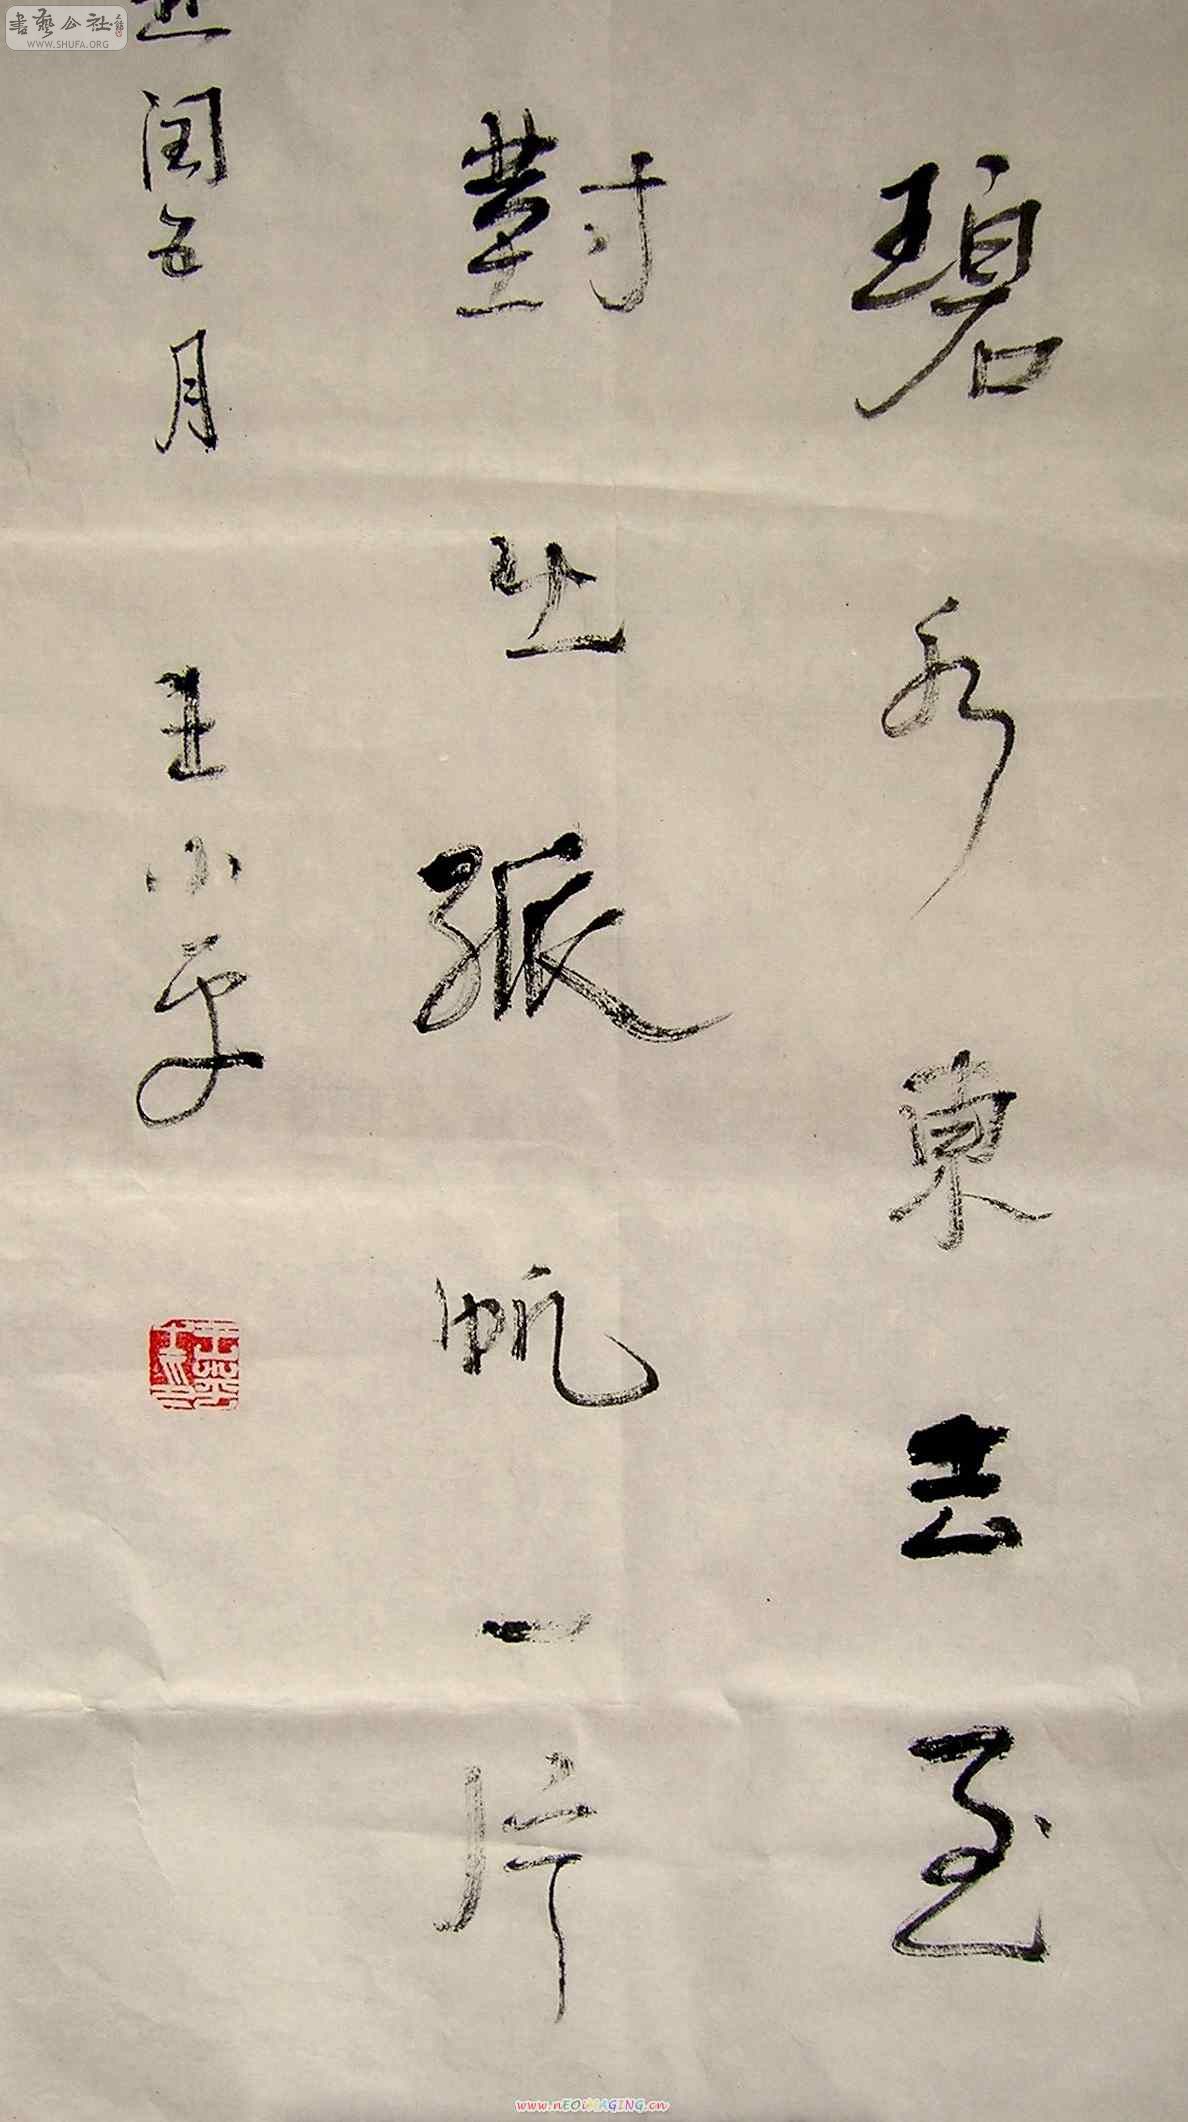 碧水東去至
對出孤帆一片
閏五月 王小平
書藝公社
WWW.SHUFA.ORG
www.nEOiMAGING.cn